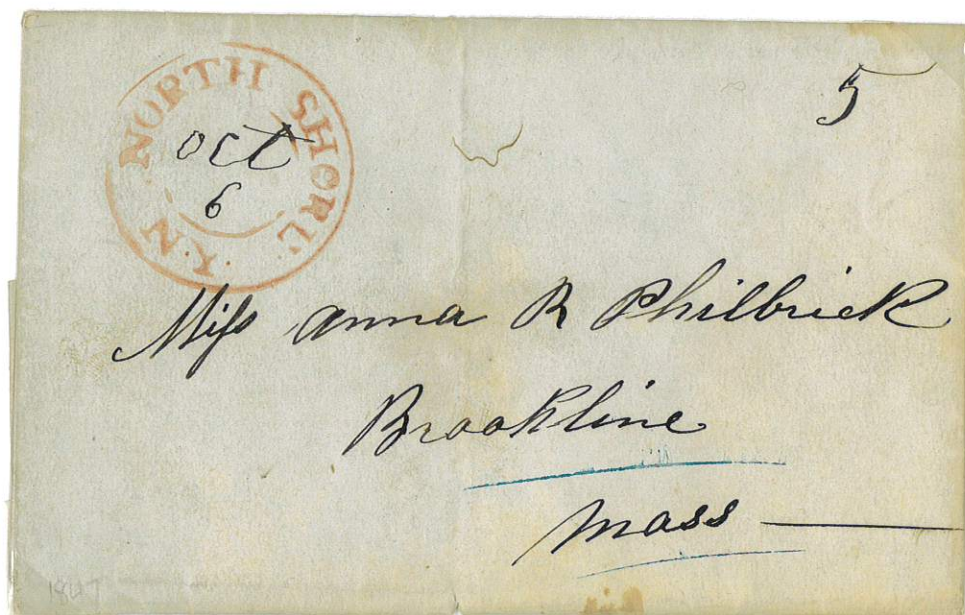 NORTH SHORE N.Y.
Oct
6
5
Miss Anna R Philbrick
Brookline
Mass
1847